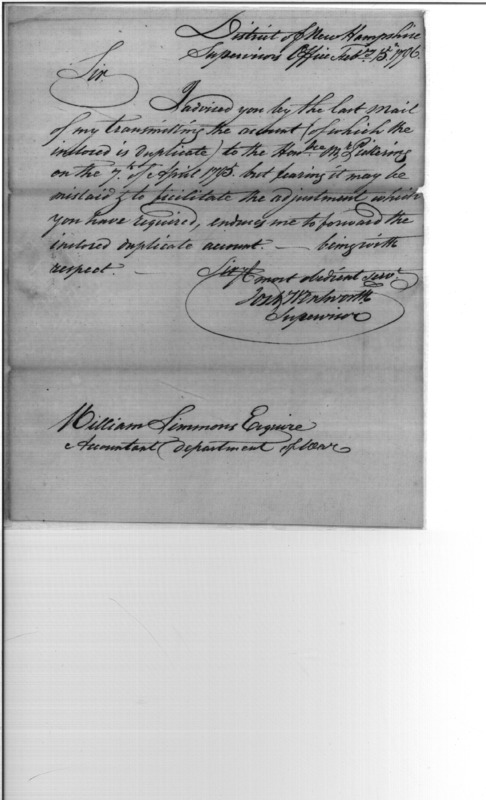 District of New Hampshire
Supervisors Office Feb.ry 15th 1796.
Sir
I adviced you by the last mail
of my transmitting the account (of which the
inclosed is duplicate) to the Hon.ble Mr Pickering
on the 7th of April 1795. but fearing it may be
mislaid & to facilitate the adjustment which
you have required, enduces me to forward the
inclosed duplicate account — being with
respect —
Sir Yr most obedient serv.t
Wentworth
Supervisor
William Simmons Esquire
Accountant department of War